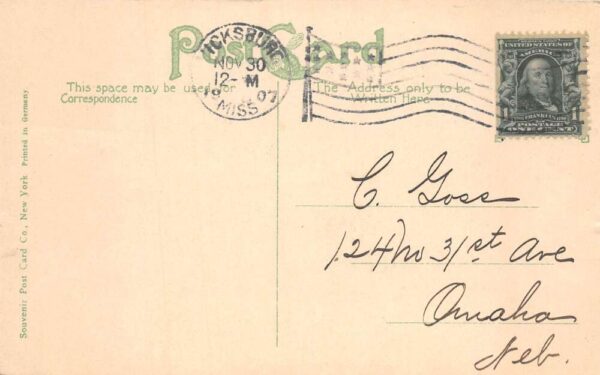 Post Card
VICKSBURG
NOV 30
12- M
1907
MISS.
UNITED STATES OF
AMERICA
FRANKLIN
1 POSTAGE 1
ONE CENT
This space may be used for
Correspondence
The Address only to be
Written Here
C. Goss
124 No 31st Ave
Omaha
Neb.
Souvenir Post Card Co., New York Printed in Germany